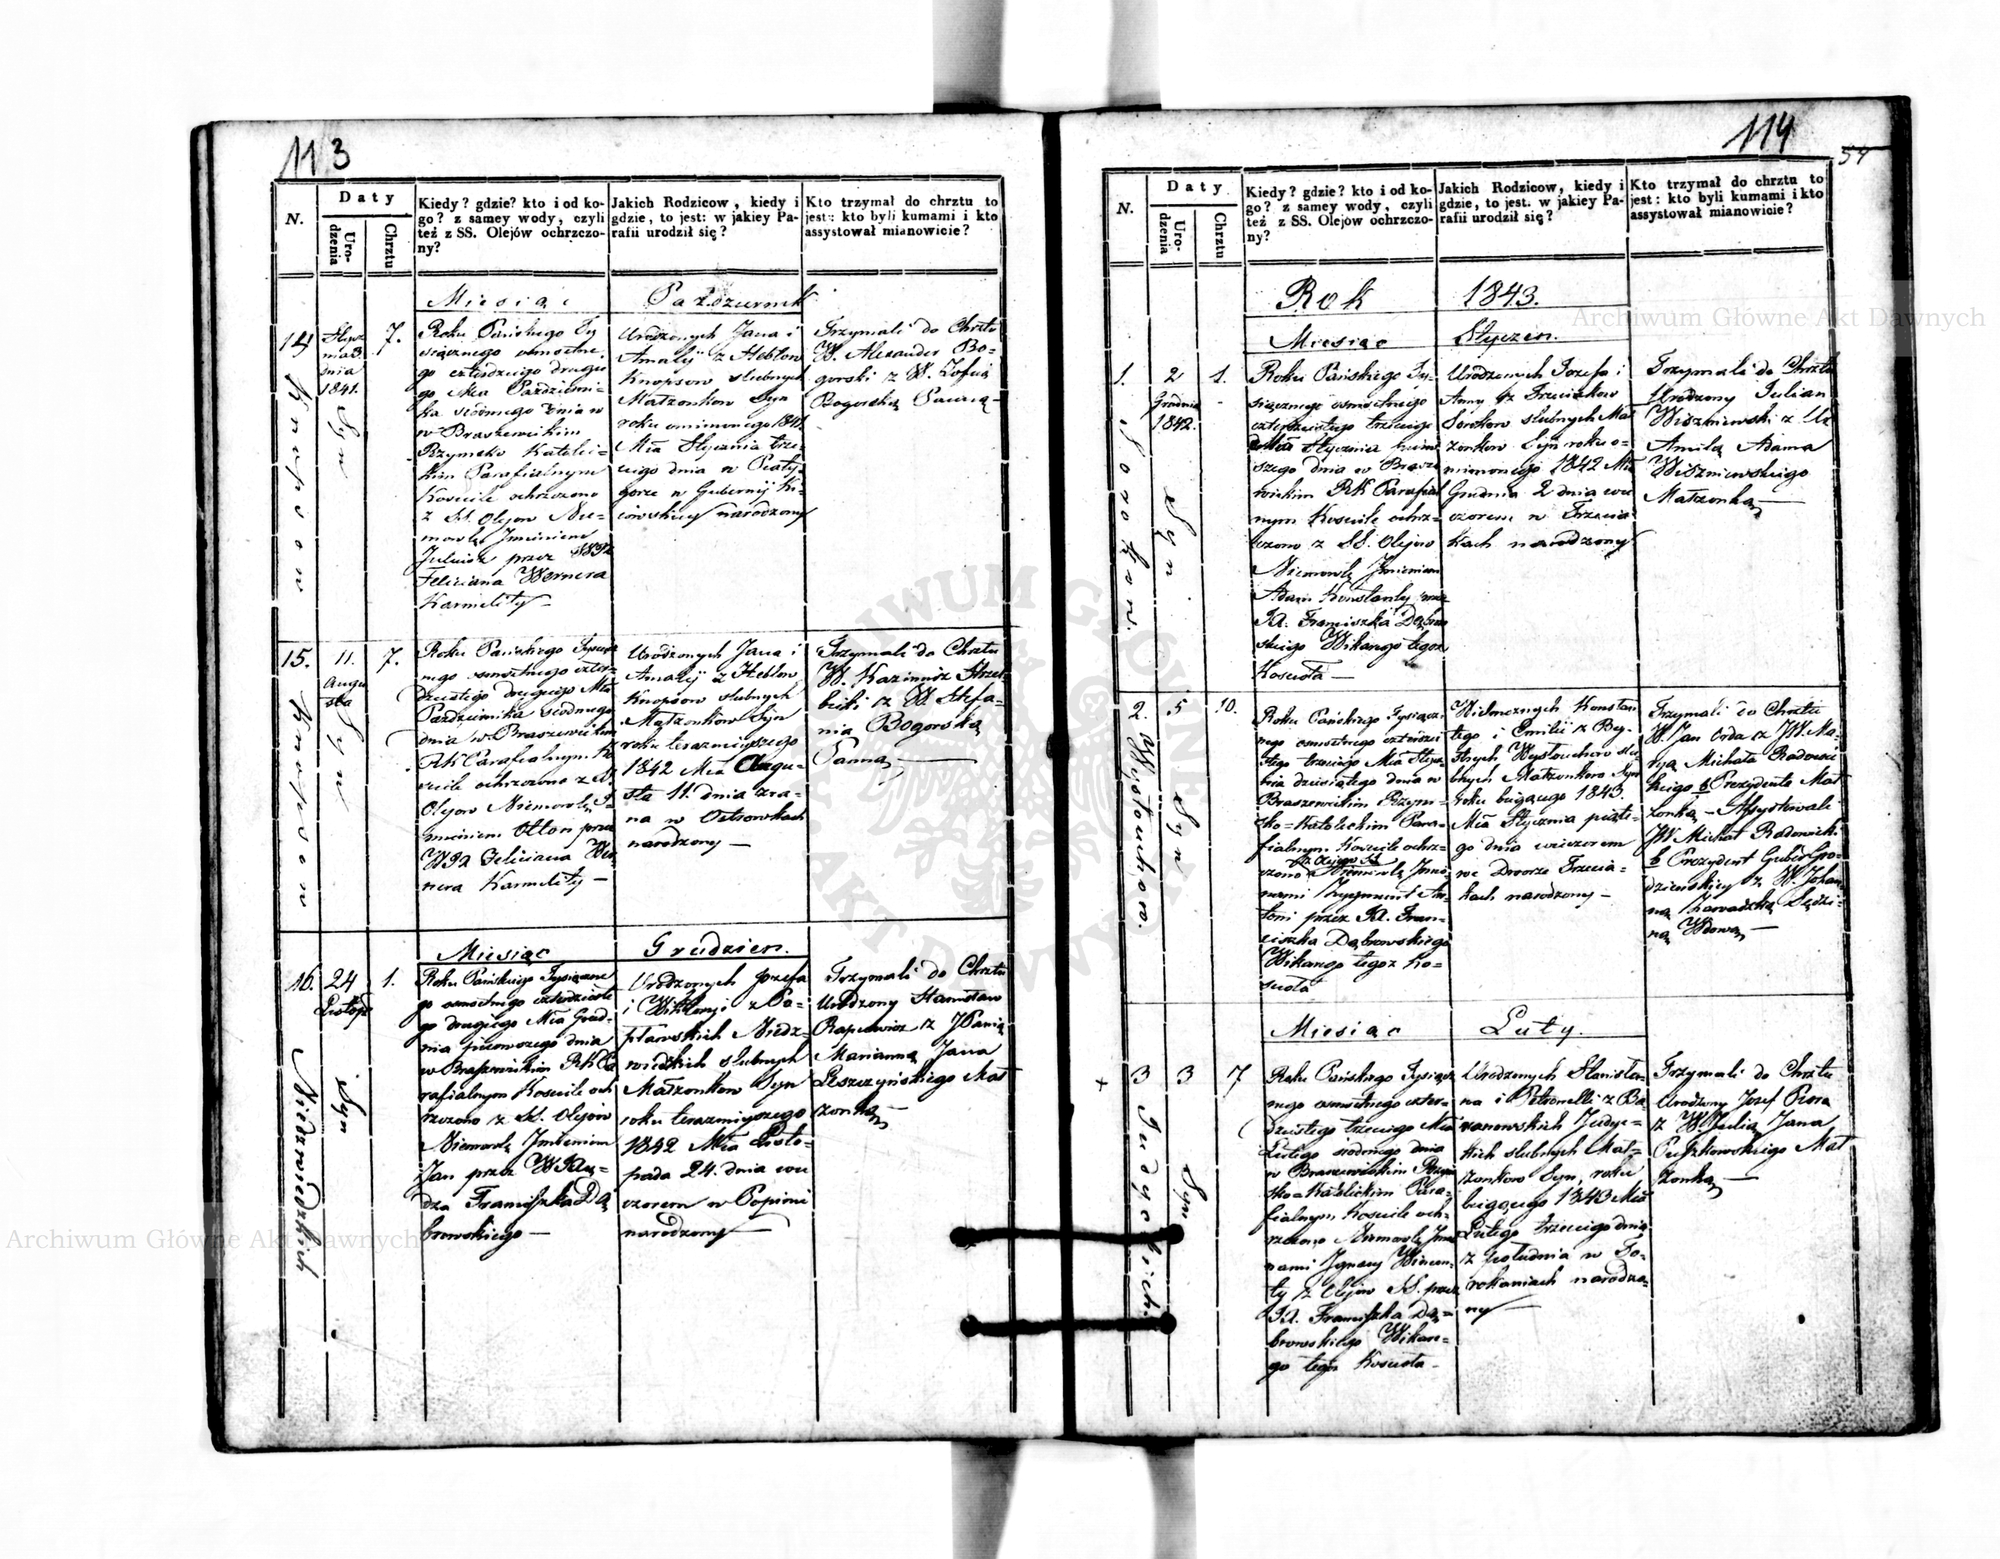 113
N.
Daty
Urodzenia
Chrztu
Kiedy? gdzie? kto i od ko-
go? z samey wody, czyli
też z SS. Olejów ochrzczo-
ny?
Jakich Rodzicow, kiedy i
gdzie, to jest: w jakiey Pa-
rafii urodził się?
Kto trzymał do chrztu to
jest: kto byli kumami i kto
assystował mianowicie?
Miesiąc
14
7.
1841.
Syn
Knopsow
Roku Pańskiego Ty
go czterdziestego drugie
w Braszewickim
Rzymsko Katolic-
kim Parafialnym
Kosciele ochrzczono
z SS. Olejow Nie-
mowle Imieniem
Feliciana Wernera
Karmelity
Urodzonych Jana i
Amalij z Heblow
Knopsow slubnych
Małzonkow Syn
roku ominionego 1841
Mca Stycznia trze-
ciego dnia w Piaty-
gorze w Gubernij Ki-
iowskiey narodzony
Trzymali do Chrztu
W. Alexander Bo-
gorski z W. Zofią
Bogorską Panną
15.
11.
Augu
sta
7.
Syn
Knopsow
Roku Pańskiego Tysiąc
nego osmsetnego czter-
dziestego drugiego Mca
Pazdziernika siodmego
dnia w Braszewickim
RK Parafialnym Ko
sciele ochrzczono z SS.
Olejow Niemowle I-
mieniem Otton przez
WJX Feliciana Wer
nera Karmelity
Urodzonych Jana i
Amalij z Heblow
Knopsow slubnych
Małzonkow Syn
roku terazniejszego
1842 Mca Augu-
sta 11. dnia zra-
na w Ostrowkach
narodzony
Trzymali do Chrztu
W. Kazimierz
z W. Stefa-
nią Bogorską
Panną
Miesiąc
Grudzien.
16.
24
Listop
1.
Syn
Niedzwiedzkich
Roku Pańskiego Tysiączne
go osmsetnego czterdzieste
go drugiego Mca Grud-
nia pierwszego dnia
w Braszewickim RK Pa
rafialnym Kosciele och
rzczono z SS. Olejow
Niemowle Imieniem
Jan przez WJXię-
dza Franciszka Dą
browskiego
Urodzonych Jozefa
i Wiktoryi z Po-
pławskich Niedz-
wiedzkich slubnych
Małzonkow Syn
roku terazniejszego
1842 Mca Listo-
pada 24. dnia wie
czorem w Popini
narodzony
Trzymali do Chrztu
Urodzony Stanisław
z JPanią
Marianną Jana
Leszczyńskiego Mał
zonką
114
54
N.
Daty
Urodzenia
Chrztu
Kiedy? gdzie? kto i od ko-
go? z samey wody, czyli
też z SS. Olejów ochrzczo-
ny?
Jakich Rodzicow, kiedy i
gdzie, to jest: w jakiey Pa-
rafii urodził się?
Kto trzymał do chrztu to
jest: kto byli kumami i kto
assystował mianowicie?
Rok
1843.
Miesiąc
Styczen.
1.
2
Grudnia
1842.
1.
Syn
Sorokow.
Roku Pańskiego Ty-
siącznego osmsetnego
czterdziestego trzeciego
Mca Stycznia pierw
szego dnia w Brasze
wickim RK Parafial
nym Kosciele ochrz-
czono z SS. Olejow
Niemowle Imieniem
Adam Konstanty przez
JX. Franciszka Dąbrow
skiego Wikarego tegoz
Kosciola
Urodzonych Jozefa i
Anny z
Sorokow slubnych Mał
zonkow Syn roku o-
minionego 1842 Mca
Grudnia 2 dnia wie
czorem w Trzecia
kach narodzony
Trzymali do Chrztu
Urodzony Julian
Wiszniewski z Ur
Amilą Adama
Wiszniewskiego
Małzonką
2.
5
10.
Syn
Wysłouchow.
Roku Pańskiego Tysiącz
nego osmsetnego czterdzies
tego trzeciego Mca Stycz
nia dziesiątego dnia w
Braszewickim Rzym-
sko-Katolickim Para-
fialnym Kosciele ochrz-
z Olejow SS.
czono Niemowle Imio-
nami Zygmunt An-
toni przez JX. Fran-
ciszka Dąbrowskiego
Wikarego tegoz Ko-
sciola
Wielmoznych Konstan
tego i Emilii z By-
Wysłouchow slu
bnych Małzonkow Syn
roku biezącego 1843.
Mca Stycznia piąte-
go dnia wieczorem
we Dworze Trzecia-
kach narodzony
Trzymali do Chrztu
W. Jan Orda z JW. Ma-
ryą Michała Radowic
kiego b Prezydenta Mał
zonką Assystowali
JW Michał Radowicki
b Prezydent Guber Gro-
dzienskiey z W. Johan-
ną Zawadzką Sędzi-
ną Wdową
Miesiąc
Luty.
+
3
3
7
Syn
Judyckich.
Roku Pańskiego Tysiącz
nego osmsetnego czter-
dziestego trzeciego Mca
Lutego siodmego dnia
w Braszewickim Rzym
sko-Katolickim Para-
fialnym Kosciele och-
rzczono Niemowle Imio
nami Ignacy Wincen-
ty z Olejow SS. przez
JX. Franciszka Dą-
browskiego Wikare-
go tegoz Kosciola
Urodzonych Stanisła-
wa i Petronelli z Ba
ranowskich Judyc-
kich slubnych Mał-
zonkow Syn, roku
biegącego 1843 Mca
Lutego trzeciego dnia
z południa w To-
rokaniach narodzo-
ny
Trzymali do Chrztu
Urodzony Jozef Piora
z W. Julią Jana
Puszkowskiego Mał
zonką
Archiwum Główne Akt Dawnych
Archiwum Główne Akt Dawnych
ARCHIWUM GŁÓWNE AKT DAWNYCH